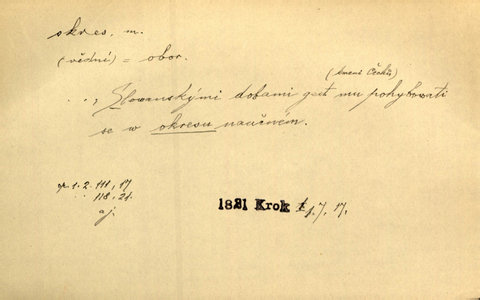 okres, m.
(vědní) = obor.
(kmenů Čechů)
Slovanskými dobami gest mu pohybovati
se w okresu naučném.
cf. 1. 2. 111, 17
118, 21.
aj.
1821 Krok 1, 7, 17,